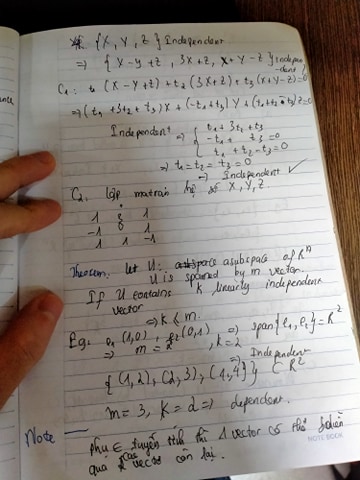 {X, Y, Z} Independent
⇒ {X-y+z, 3X+z, x+Y-z} independent
C1: t1(X-y+z)+t2(3X+z)+t3(x+Y-z)=0
⇒ (t1+3t2+t3)X+(-t1+t3)Y+(t1+t2-t3)z=0
Independent ⇒ { t1+3t2+t3
-t1+t3=0
t1+t2-t3=0
⇒ t1=t2=t3=0
→ Independent ✓
C2. lập ma trận hệ số X, Y, Z.
1 3 1
-1 0 1
1 1 -1
Theorem: let U: a subspace of Rⁿ
U is spaned by m vector.
If U contains k linearly independent
vector
⇒ k ≤ m.
Eg: e1(1,0), e2(0,1) ⇒ span{e1,e2}=R²
⇒ m=2, k=2
⇒ Independent
{(1,2),(2,3),(1,4)} ⊂ R²
m=3, k=2 ⇒ dependent.
Note
phụ ∈ tuyến tính thì 1 vector có thể
qua các vector còn lại.
NOTE BOOK